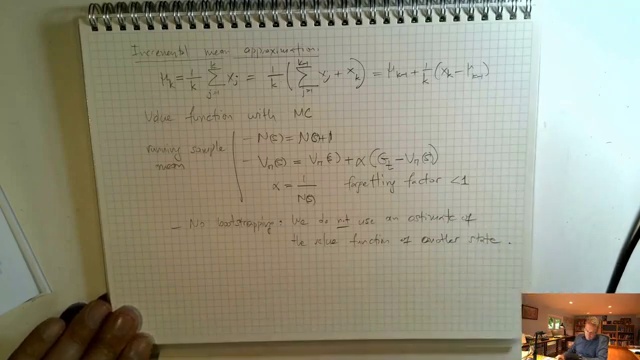 Incremental mean approximation:
μ_k = 1/k Σ_{j=1}^{k} x_j = 1/k ( Σ_{j=1}^{k-1} x_j + x_k ) = μ_{k-1} + 1/k (x_k - μ_{k-1})
Value function with MC
- N(s) = N(s)+1
running sample mean
- V_π(s) = V_π(s) + α (G_t - V_π(s))
α = 1/N(s) forgetting factor <1
- No bootstrapping: We do not use an estimate of
the value function of another state.